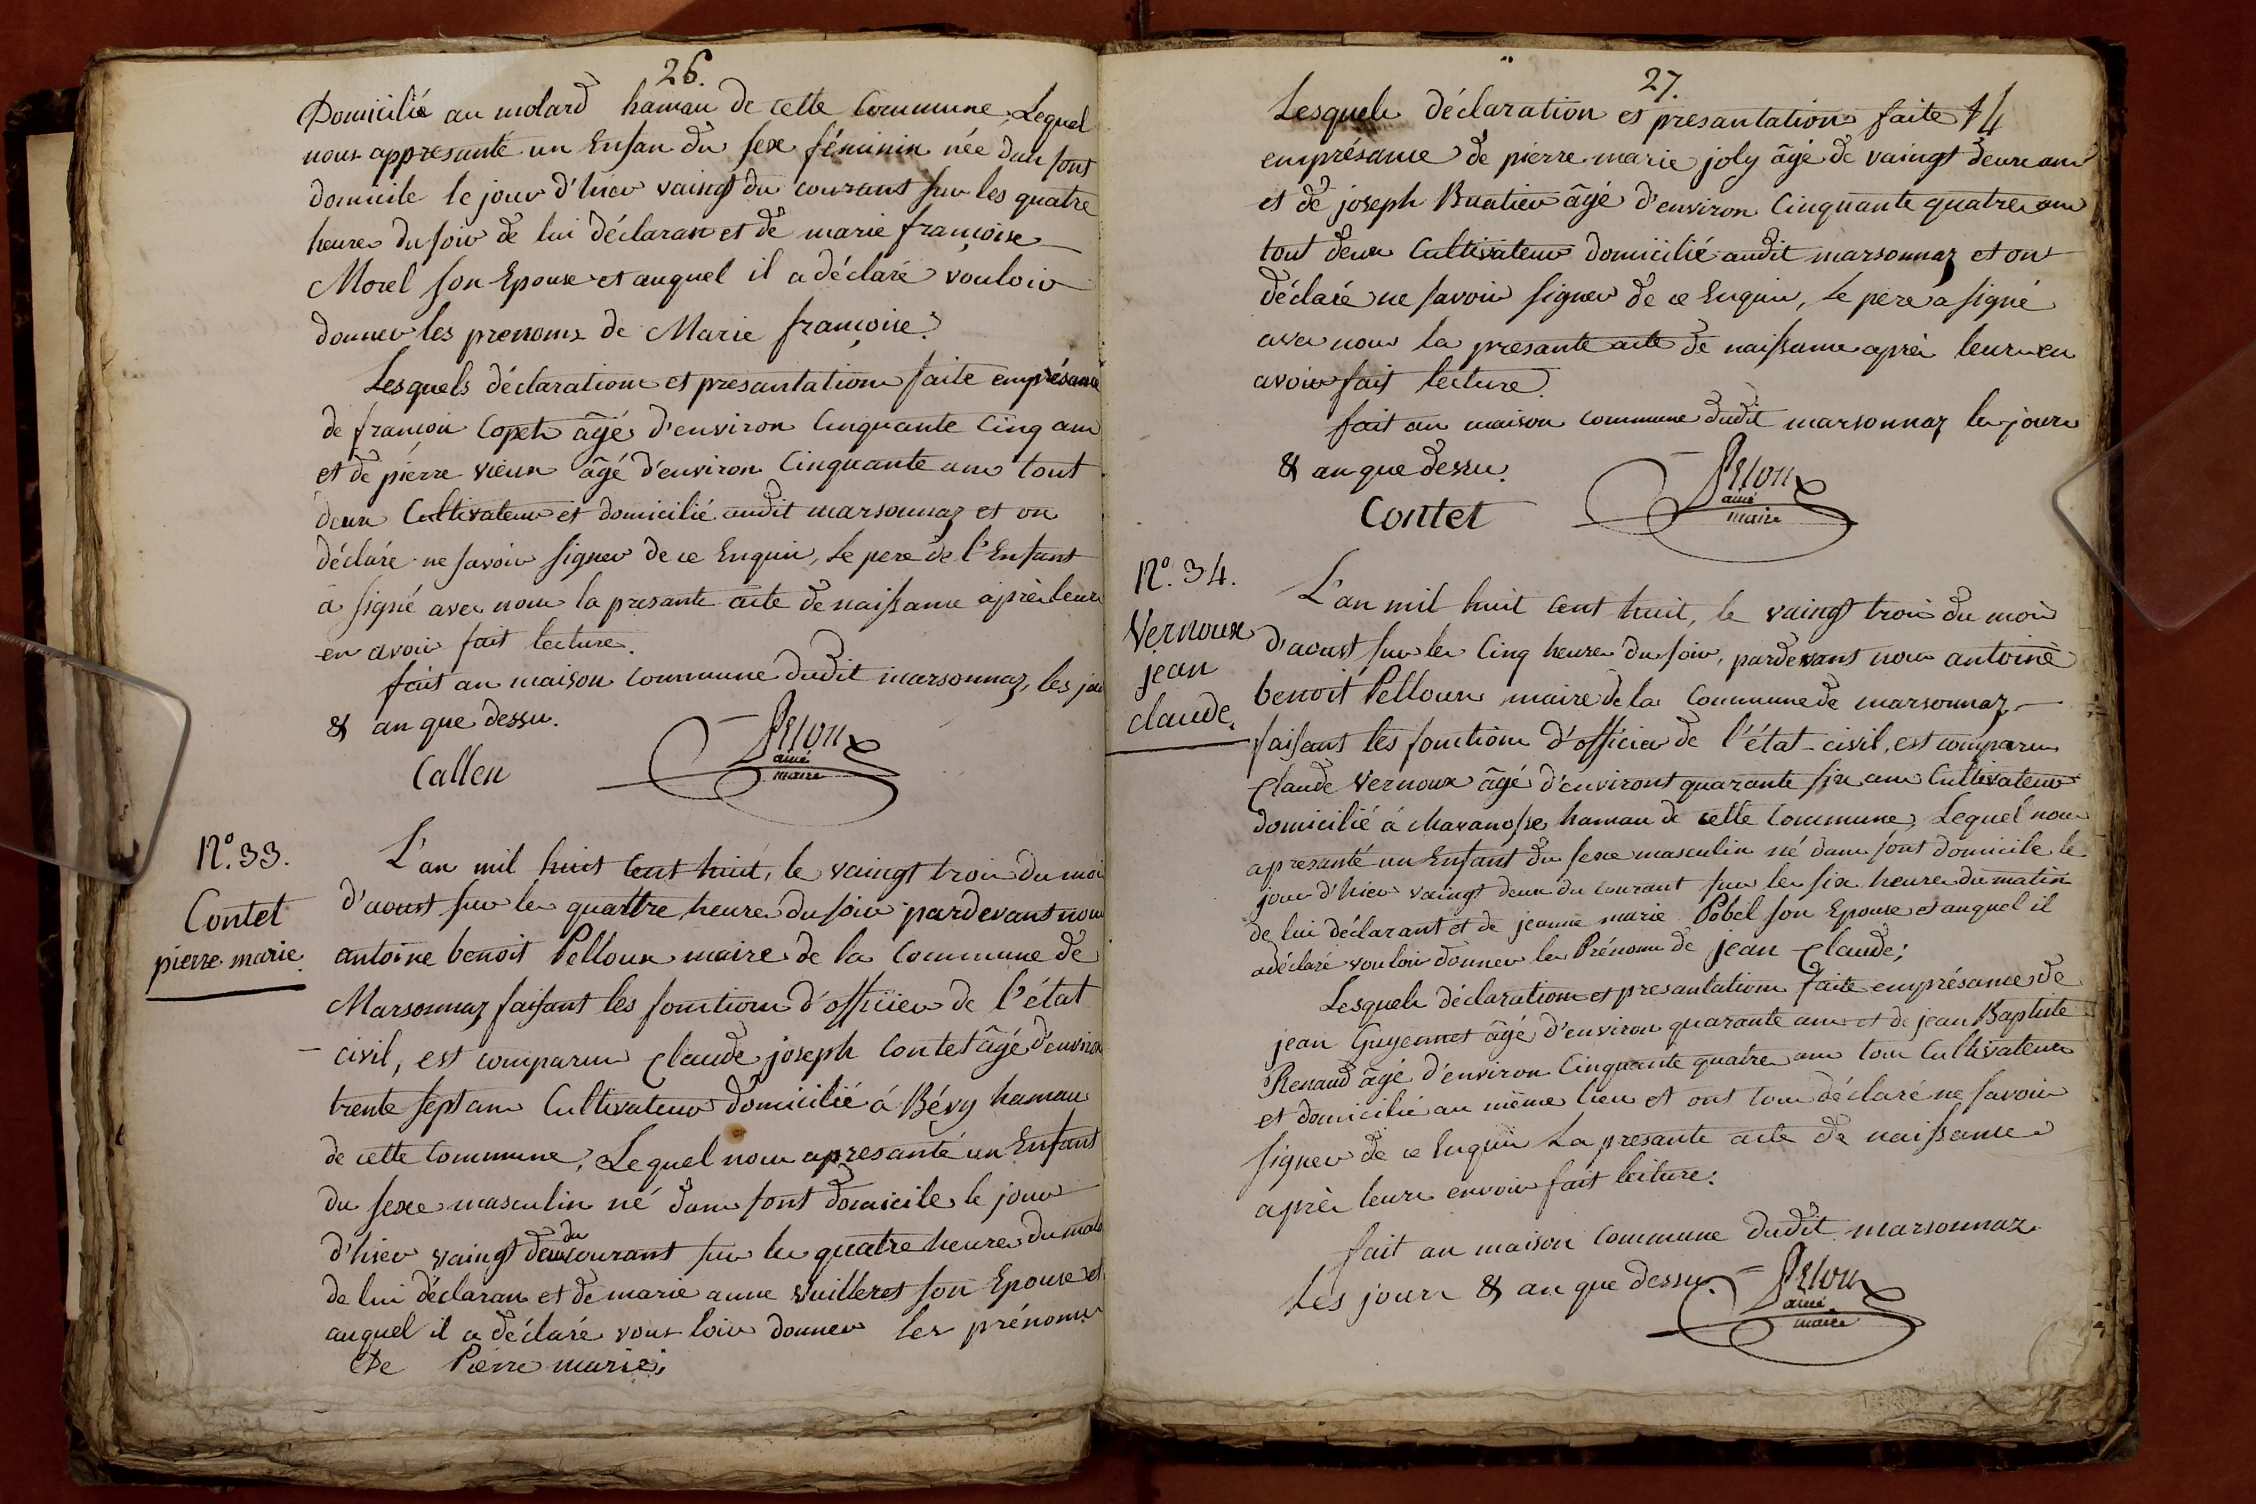 26.
Domicilié au molard hamau de cette Commune, Lequel
nous appresanté un Enfan du sexe féminin née dan sont
domicile le jour d'hier vaingt du courant sur les quatre
heures du soir de lui déclarant et de marie françoise
Morel son Epouse et auquel il a déclaré vouloir
donner les prenoms de Marie françoise.
Lesquels déclarations et presantations faite emprésance
de françois Copet âgé d'environ Cinquante Cinq ans
et de pierre vieux âgé d'environ Cinquante ans tout
deux Cultivateur et domicilié audit marsonnaz et on
déclaré ne savoir signer de ce Enquis, Le pere de l'Enfant
a signé avec nous la presante acte de naissance après leurs
en avoir fait lecture.
fait au maison Commune dudit marsonnaz, les jou
& an que dessu.
Callen
Peloux
ainé
maire
N.° 33.
Contet
pierre marie
L'an mil huit Cent huit, le vaingt trois du moi
d'aoust sur les quattre heures du soir pardevant nous
antoine benoit Pelloux maire de la Commune de
Marsonnaz faisant les fonctions d'officier de l'état
civil, est comparus Claude joseph Contet âgé d'environ
trente sept ans Cultivateur domicilié á Bévy hamau
de cette Commune, Lequel nous apresanté un Enfant
du sexe masculin né dans sont domicile le jour
d'hier vaingt deux du courant sur les quatre heures du mat
de lui déclarans et de marie anne Vuilleret son Epouse et
auquel il a déclaré vous loir donner les prénoms
De Pierre marie;
27.
14
Lesquels déclarations et presantations faite
emprésance de pierre marie joly âgé de vaingt deux ans
et de joseph Buatier âgé d'environ Cinquante quatre ans
tout deux Cultivateur domicilié audit marsonnaz et on
déclaré ne savoir signer de ce Enquis, Le pere a signé
avec nous la presante acte de naissance après leurs en
avoir fait lecture.
fait au maison commune dudit marsonnaz les jours
& an que dessu.
Contet
Peloux
ainé
maire
N.° 34.
Vernoux
jean
claude.
L'an mil huit Cent huit, le vaingt trois du mois
d'aoust sur les Cinq heures du soir, pardevant nous antoine
benoit Pelloux maire de la Commune de marsonnaz
faisant les fonctions d'officier de l'état civil, est comparus
Claude Vernoux âgé d'environt quarante six ans Cultivateur
domicilié á Mavanosse hamau de cette Commune, Lequel nous
apresanté un Enfant du sexe masculin né dans sont domicile le
jour d'hier vaingt deux du courant sur les six heures du matin
de lui déclarant et de jeanne marie Pobel son Epouse et auquel il
a déclaré vouloir donner les Prénoms de jean Claude;
Lesquels déclarations et presantations faite emprésance de
jean Guyennet âgé d'environ quarante ans et de jean Baptiste
Renaud âgé d'environ Cinquante quatre ans tous Cultivateur
et domicilié au même lieu et ont tous déclaré ne savoir
signer de ce Enquis La presante acte de naissance
après leurs envoir fait lecture.
fait au maison Commune dudit marsonnaz
Les jours & an que dessu.
Peloux
ainé
maire